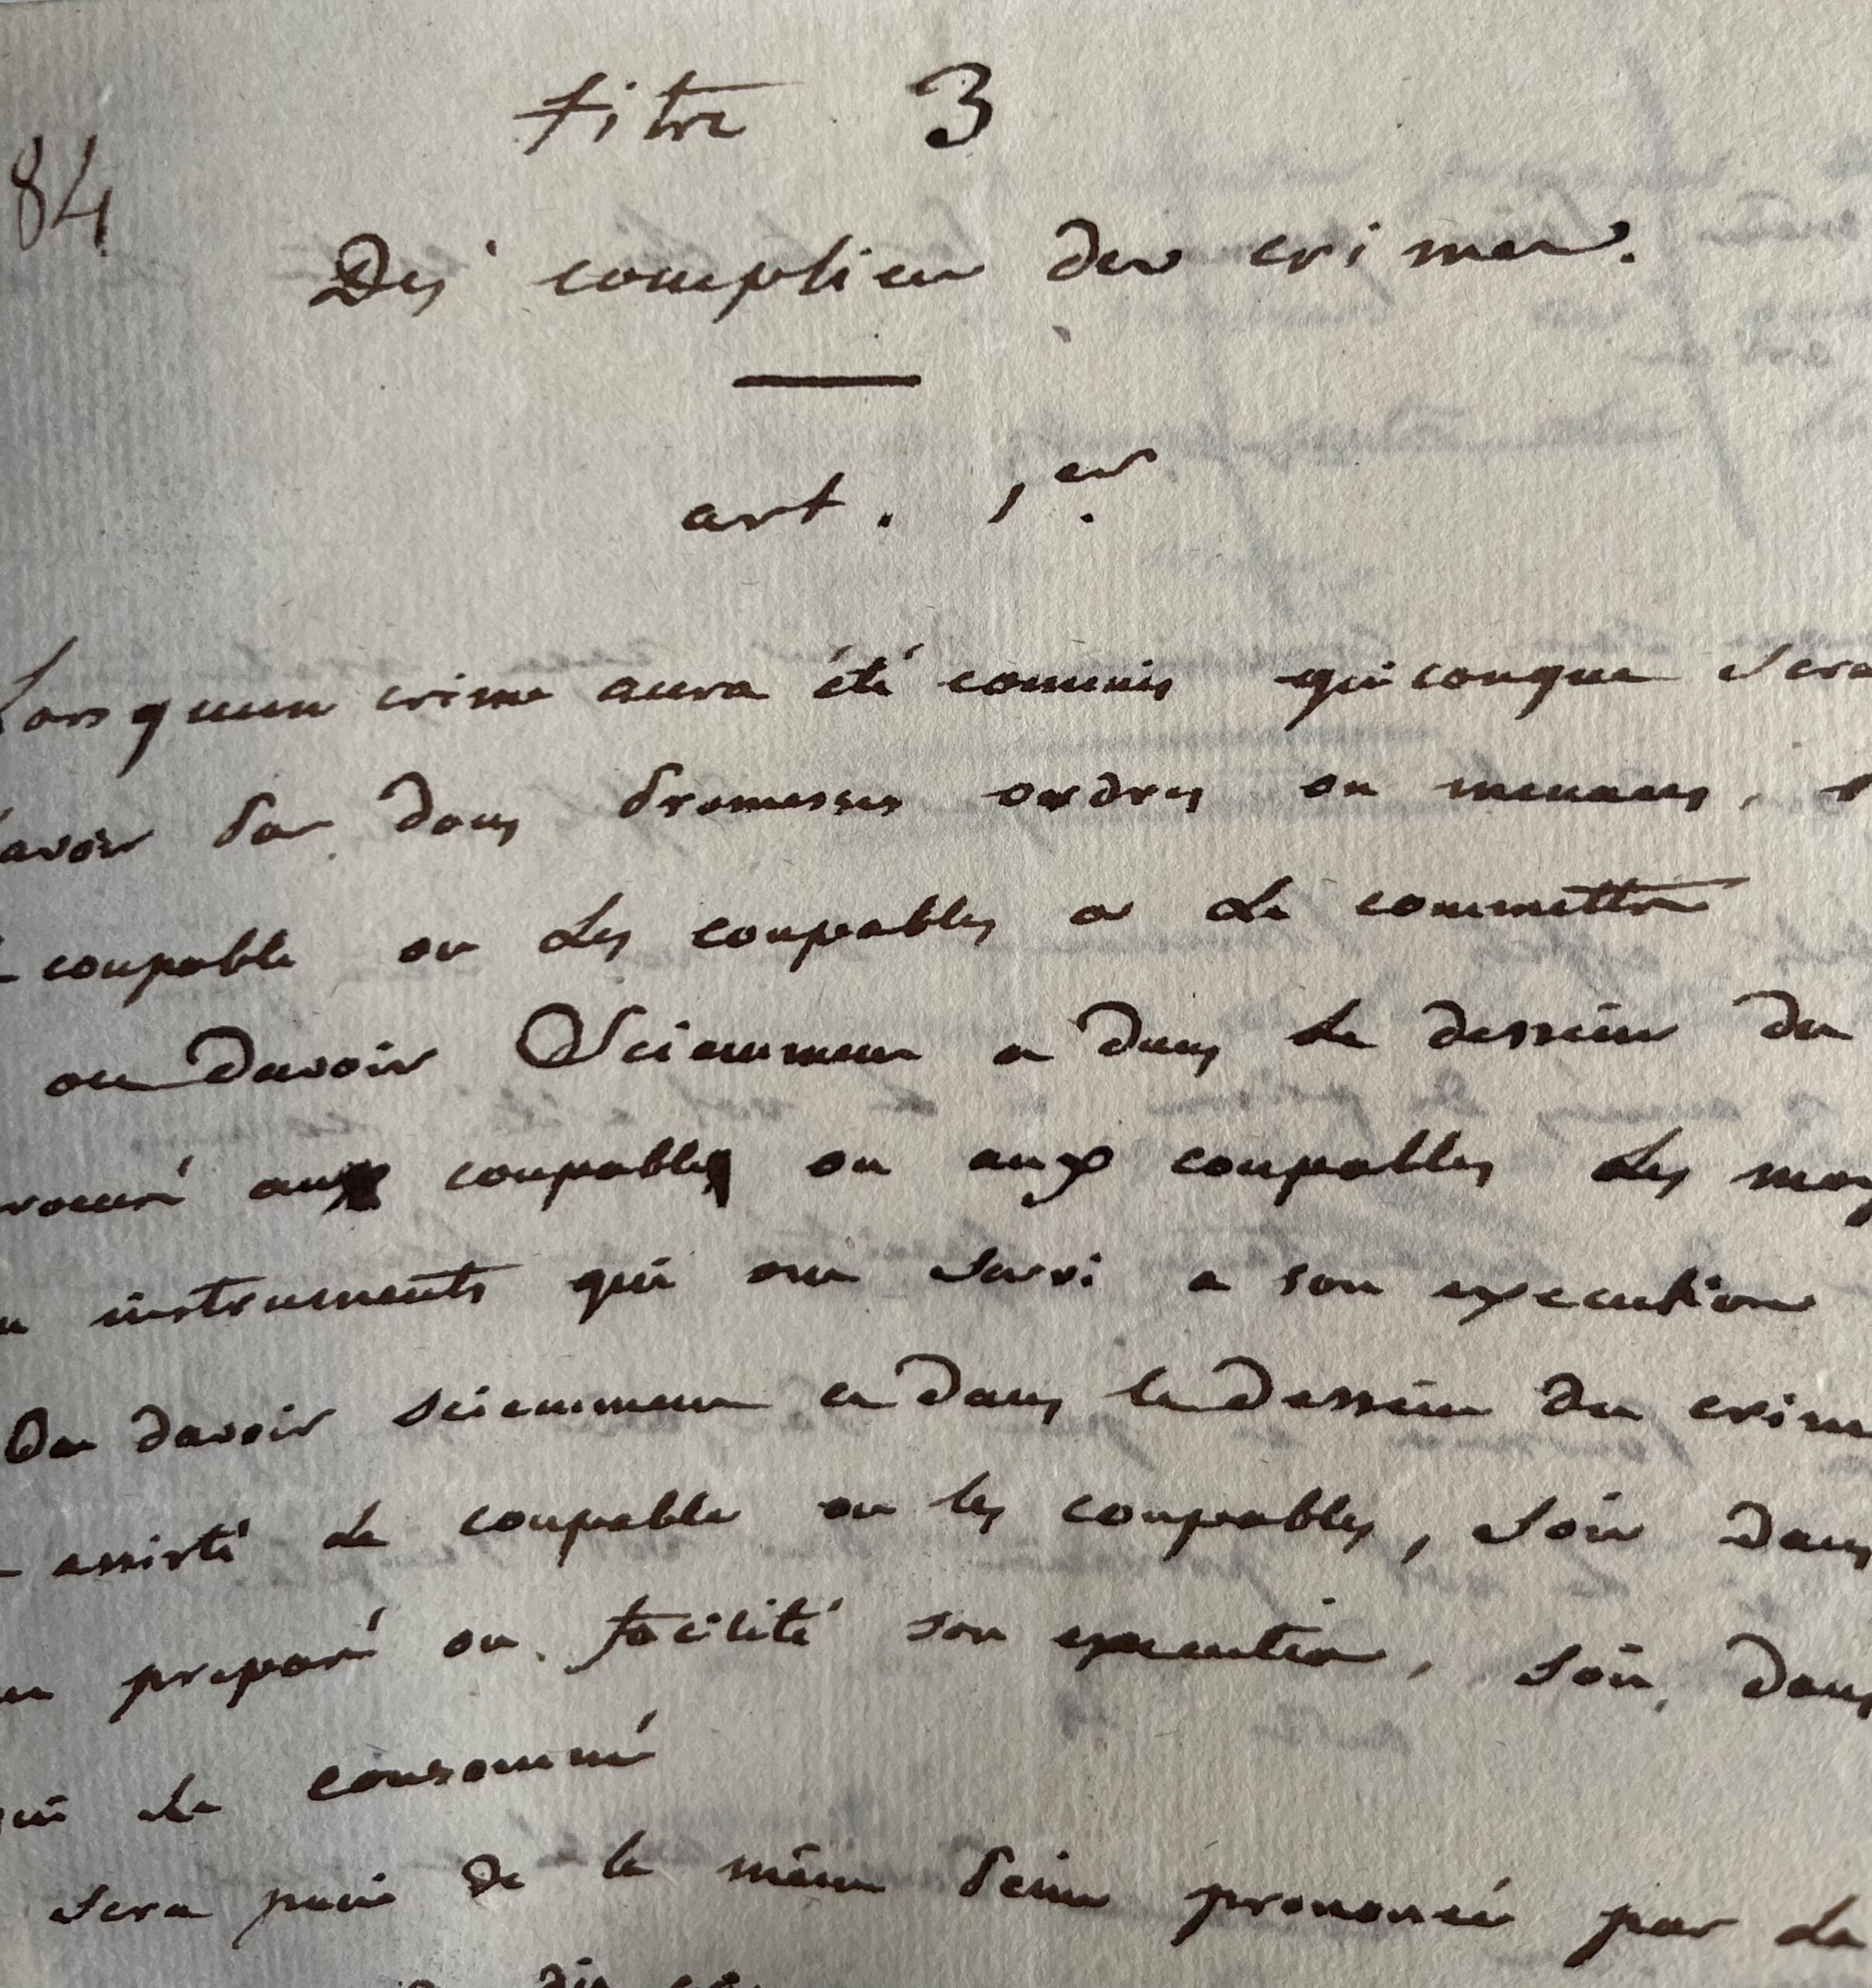 titre 3
84
Des complices des crimes.
art. 1er.
Lorsquun crime aura été commis quiconque sera
avoir par dons promesses ordres ou menaces,
coupable ou les coupables a le commettre
ou davoir Sciemment et dans le dessein du
rocuré aux coupables ou aux coupables les moy
instruments qui ont servi a son execution
Ou davoir sciemment et dans le dessein du crime
assisté le coupable ou les coupables, soit dans
preparé ou facilité son execution, soit dans
qui la consommé
sera puni de la même peine prononcée par la